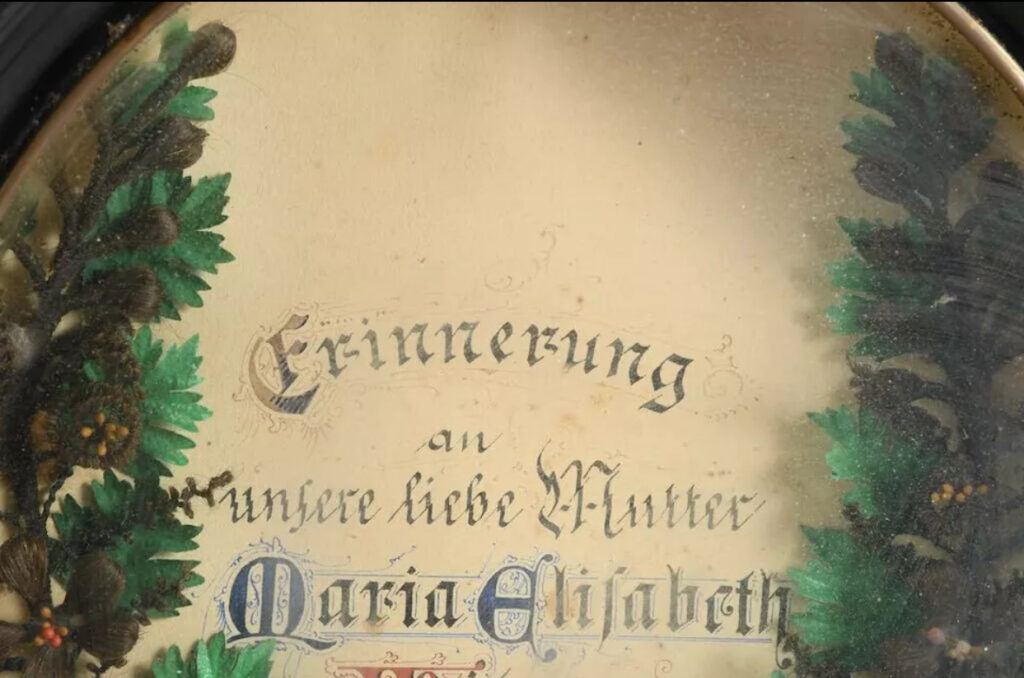 Erinnerung
an
unsere liebe Mutter
Maria Elisabeth